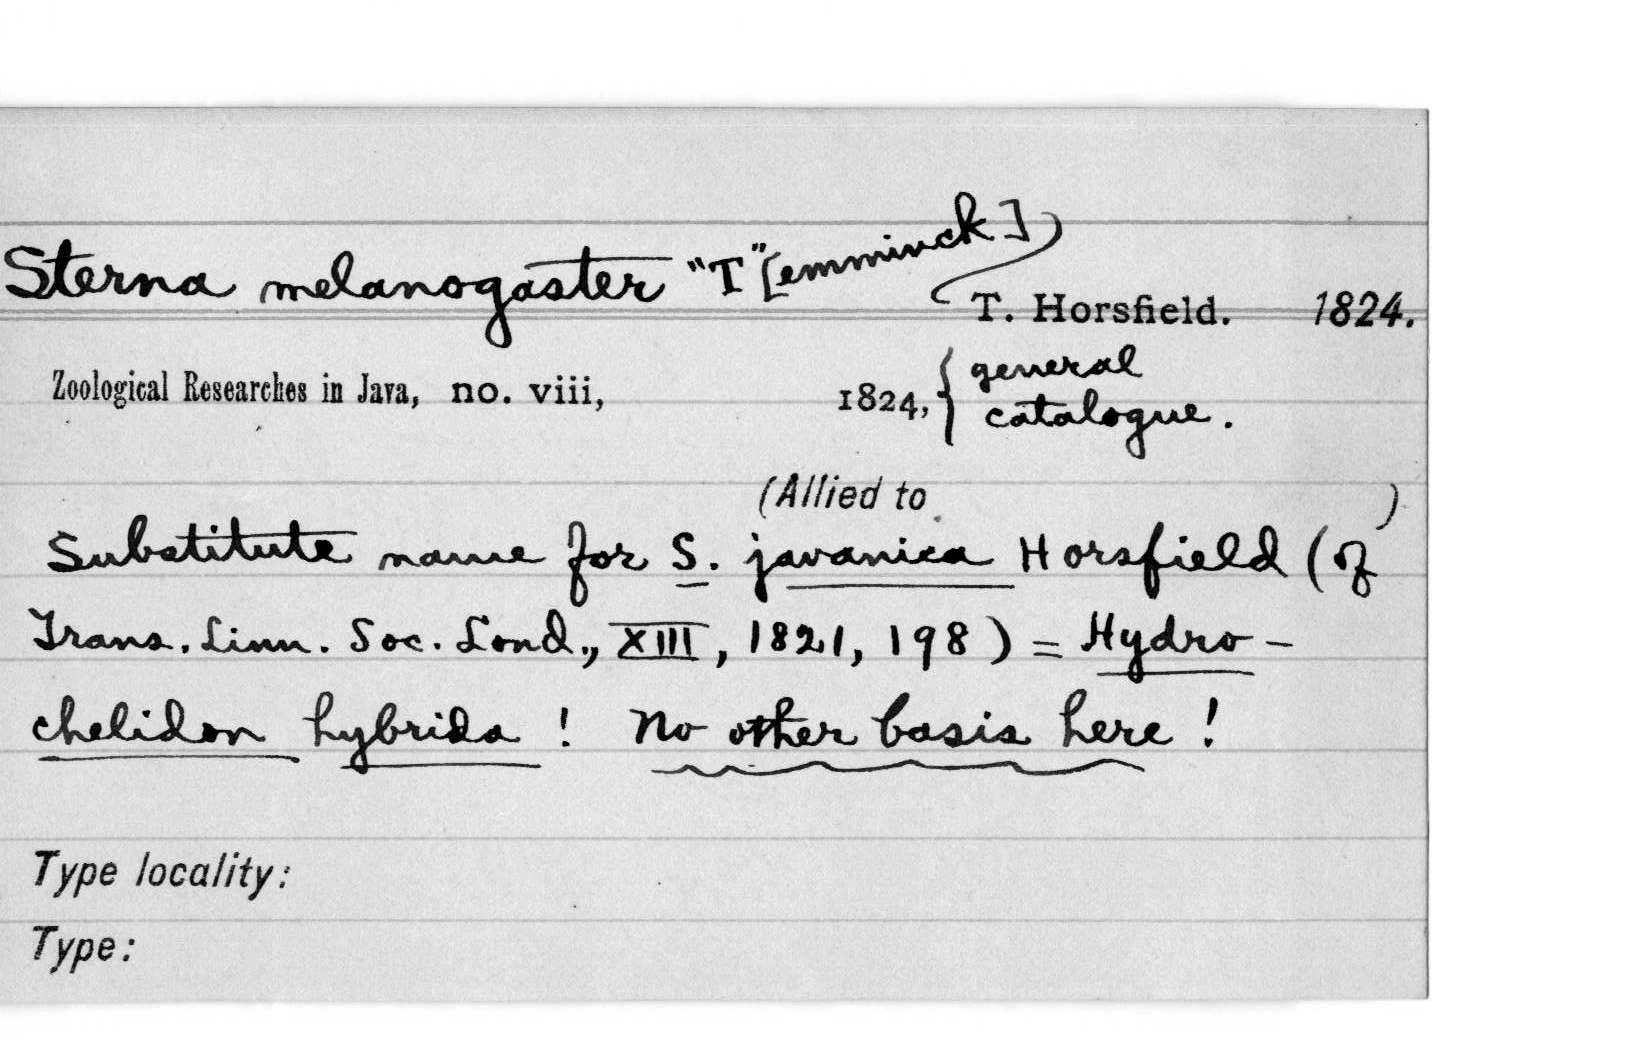 Sterna melanogaster "T"[emminck])
(T. Horsfield. 1824.
Zoological Researches in Java, no. viii, 1824, { general catalogue.
(Allied to )
Substitute name for S. javanica Horsfield (of
Trans. Linn. Soc. Lond., XIII, 1821, 198) = Hydro-
chelidon hybrida! No other basis here!
Type locality:
Type: